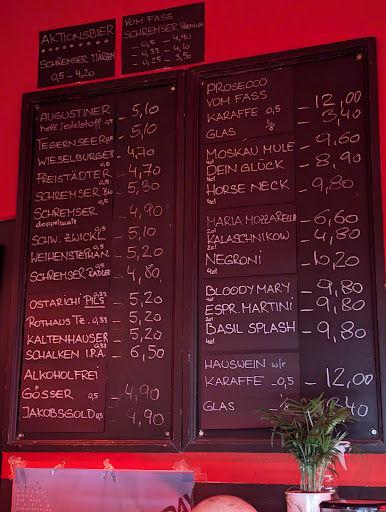 AKTIONSBIER
SCHREMSER
0,5 - 4,20
VOM FASS
SCHREMSER PREMIUM
- 0,5 - 4,90
- 0,33 - 4,10
- 0,25 - 3,50
AUGUSTINER - 5,10
hell/edelstoff 0,5
TEGERNSEER 0,5 - 5,10
WIESELBURGER 0,5 - 4,70
FREISTÄDTER 0,5 - 4,70
SCHREMSER BIO 0,5 - 5,30
SCHREMSER 0,5 - 4,90
doppelmalz
SCHW. ZWICKL 0,5 - 5,10
WEIHENSTEPHAN 0,5 - 5,20
SCHREMSER RADLER 0,5 - 4,80
OSTARICHI PILS 0,33 - 5,20
ROTHAUS TZ. 0,33 - 5,20
KALTENHAUSER 0,33 - 5,20
SCHALKEN I.P.A. - 6,50
ALKOHOLFREI
GÖSSER 0,5 - 4,90
JAKOBSGOLD 0,5 4,90
PROSECCO
VOM FASS
KARAFFE 0,5 - 12,00
GLAS 1/8 - 3,40
MOSKAU MULE 4cl - 9,60
DEIN GLÜCK 4cl - 8,90
HORSE NECK 4cl - 9,80
MARIA MOZZARELLA 2cl - 6,60
KALASCHNIKOW 2cl - 4,80
NEGRONI 4cl - 10,20
BLOODY MARY 4cl - 9,80
ESPR. MARTINI - 9,80
BASIL SPLASH - 9,80
HAUSWEIN w/r
KARAFFE 0,5 - 12,00
GLAS